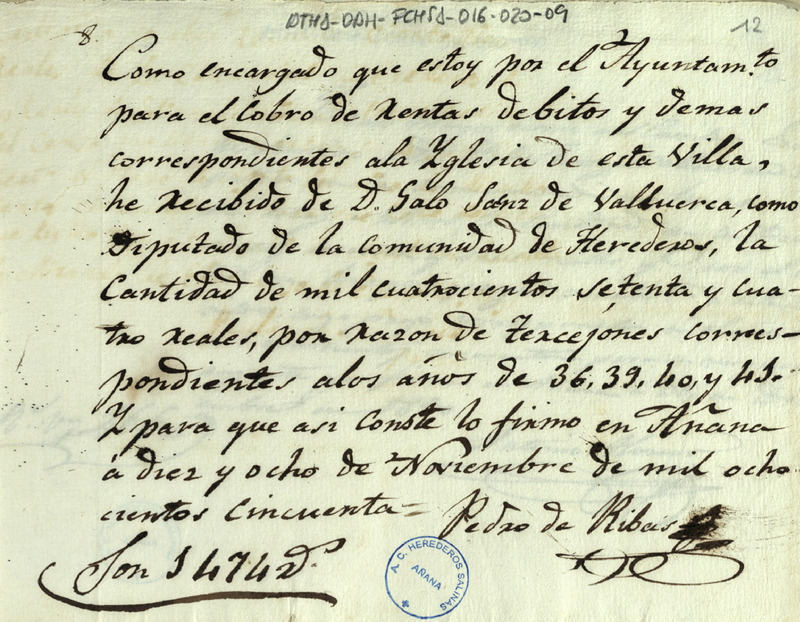 ATHA-DAH-FCHSA-016-020-09
12
8.
Como encargado que estoy por el Ayuntam.to
para el Cobro de Rentas debitos y demas
correspondientes ala Yglesia de esta Villa,
he Recibido de D. Galo Sanz de Valluerca, como
Diputado de la Comunidad de Herederos, la
Cantidad de mil cuatrocientos setenta y cua-
tro reales, por razon de Tercejones corres-
pondientes alos años de 36, 39, 40, y 41.
Y para que asi conste lo firmo en Añana
á diez y ocho de Noviembre de mil ocho
cientos cincuenta=
Pedro de Ribas
Son 1474 Ds.
A. C. HEREDEROS SALINAS
AÑANA